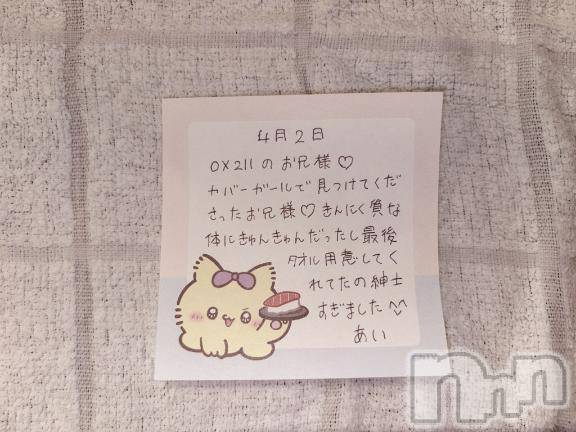 4月2日
OX211のお兄様♡
カバーガールで見つけてくだ
さったお兄様♡きんにく質な
体にきゅんきゅんだったし最後
タオル用意してく
れてたの紳士
すぎました
あい
nnn